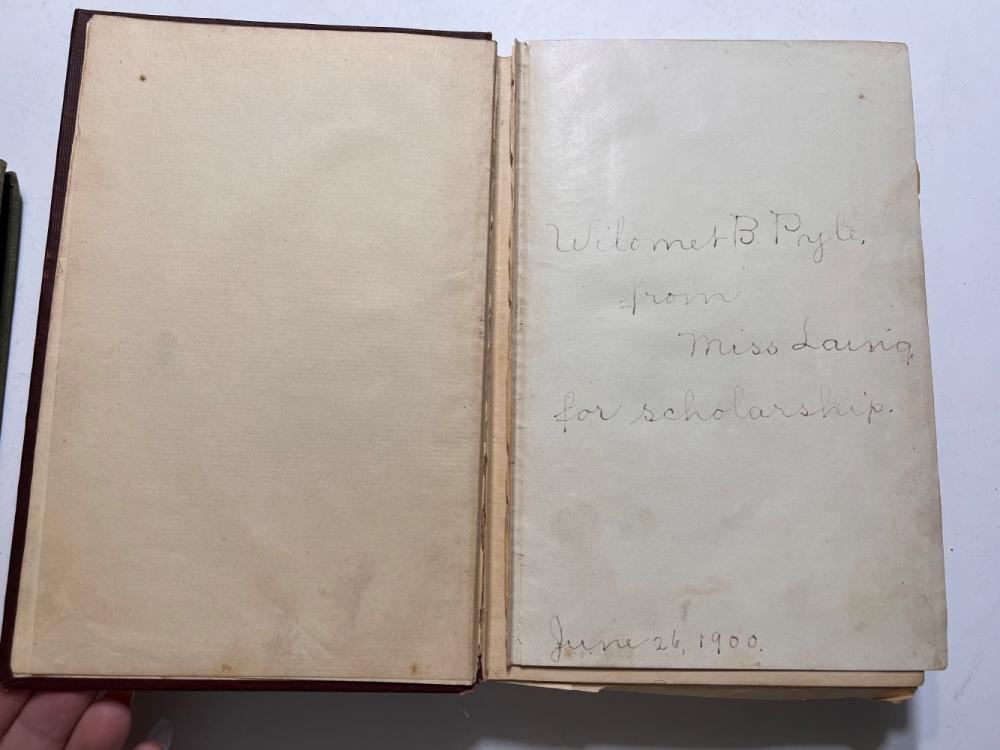 Wilomet B. Pyle,
from
Miss Laing,
for scholarship.
June 26, 1900.